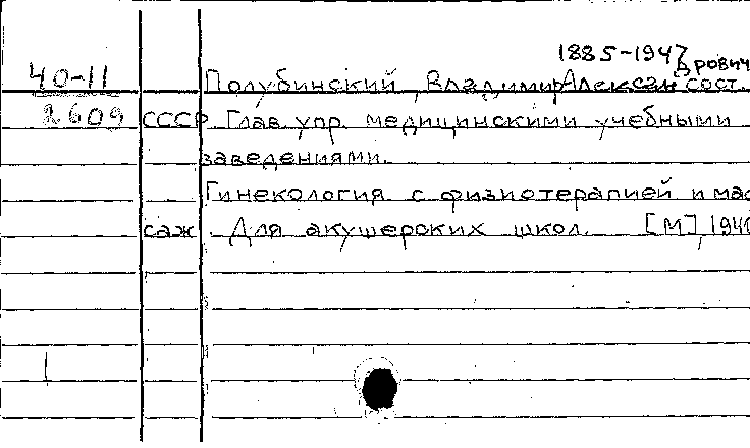 1885-1947
40-11 Полубинский, Владимир Александрович сост.
2609 СССР. Глав. упр. медицинскими учебными
заведениями.
Гинекология с физиотерапией и мас
саж. Для акушерских школ. [М], 1940